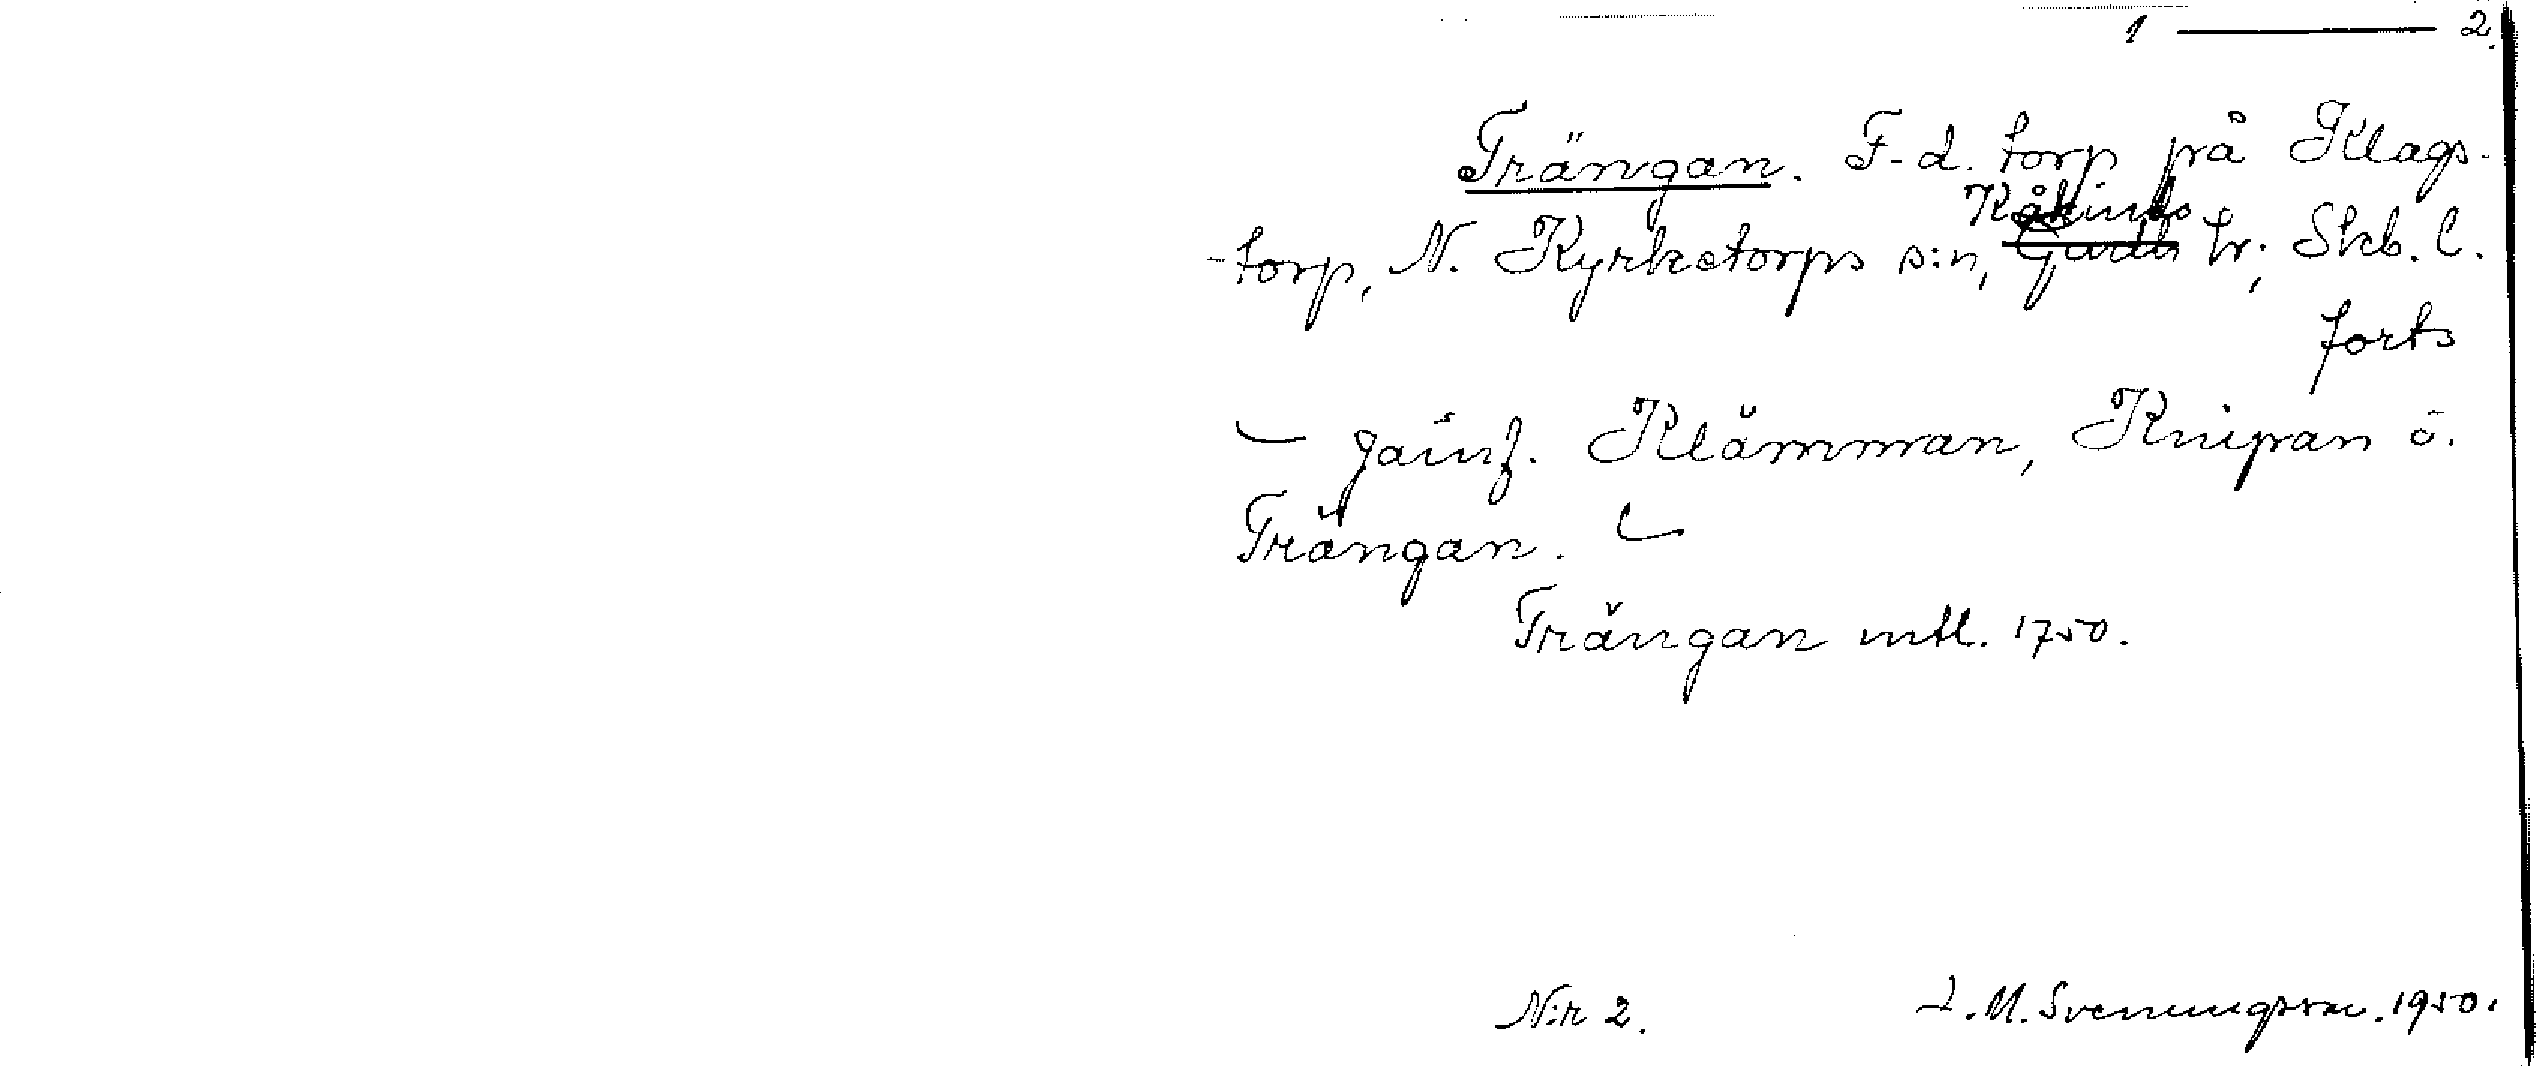 1 — 2.
Trängan. F. d. torp på Klags-
Kåkinds
-torp, N. Kyrketorps s:n, Gudh hr; Skb. l.
forts
– jämf. Klämman, Knipan o.
Trängan.
Trängan mtl. 1750.
N:r 2. L. M. Svenungsson. 1950.